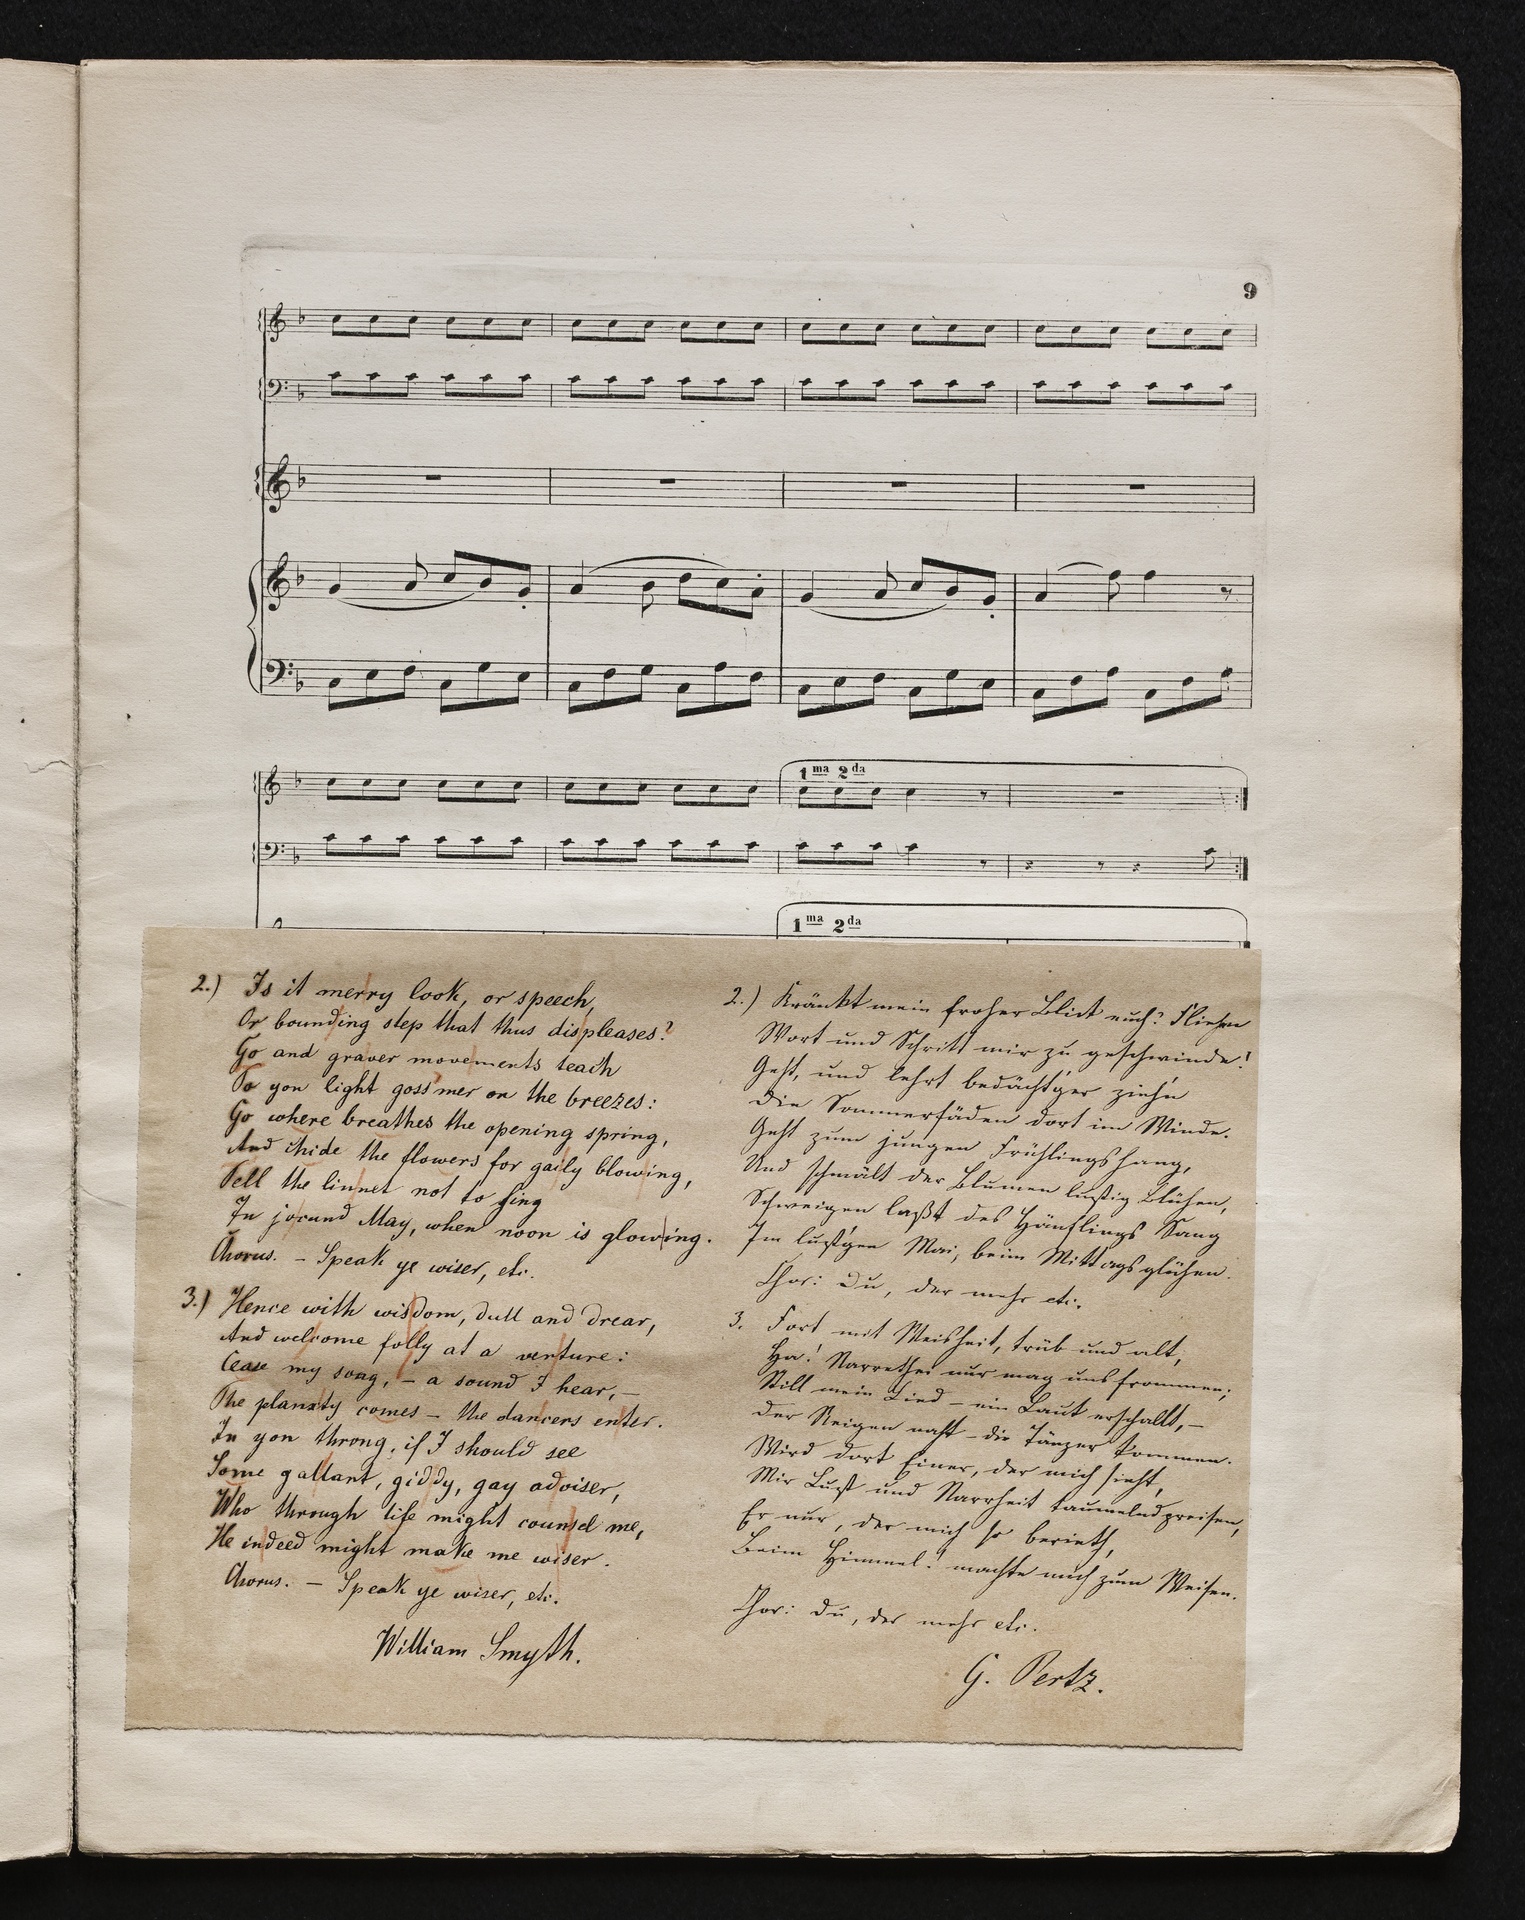 9
1ma 2da
1ma 2da
2.) Is it merry look, or speech,
Or bounding step that thus displeases?
Go and graver movements teach
To yon light goss'mer on the breezes:
Go where breathes the opening spring,
And chide the flowers for gaily blowing,
Tell the linnet not to sing
In jocund May, when noon is glowing.
Chorus. – Speak ye wiser, etc.
3.) Hence with wisdom, dull and drear,
And welcome folly at a venture:
Cease my song, – a sound I hear, –
The planxty comes – the dancers enter.
In yon throng, if I should see
Some gallant, giddy, gay adviser,
Who through life might counsel me,
He indeed might make me wiser.
Chorus. – Speak ye wiser, etc.
William Smyth.
2.) Kränkt mein froher Blick euch? Fliehen
Wort und Schritt mir zu geschwinde!
Geht, und lehrt bedächt'ger zieh'n
Die Sommerfäden dort im Winde.
Geht zum jungen Frühlingshang,
Und schmält der Blumen lustig Blühen,
Schweigen laßt des Hänflings Sang
Im lust'gen Mai, beim Mittagsglühen.
Chor: Du, der mehr etc.
3. Fort mit Weisheit, trüb und alt,
Ha! Narrethei nur mag uns frommen;
Still mein Lied – ein Laut erschallt, –
Der Reigen naht – die Tänzer kommen.
Wird dort Einer, der mich sieht,
Mir Lust und Narrheit taumelnd preisen,
Er nur, der mich so berieth,
Beim Himmel! machte mich zum Weisen.
Chor: Du, der mehr etc.
G. Pertz.